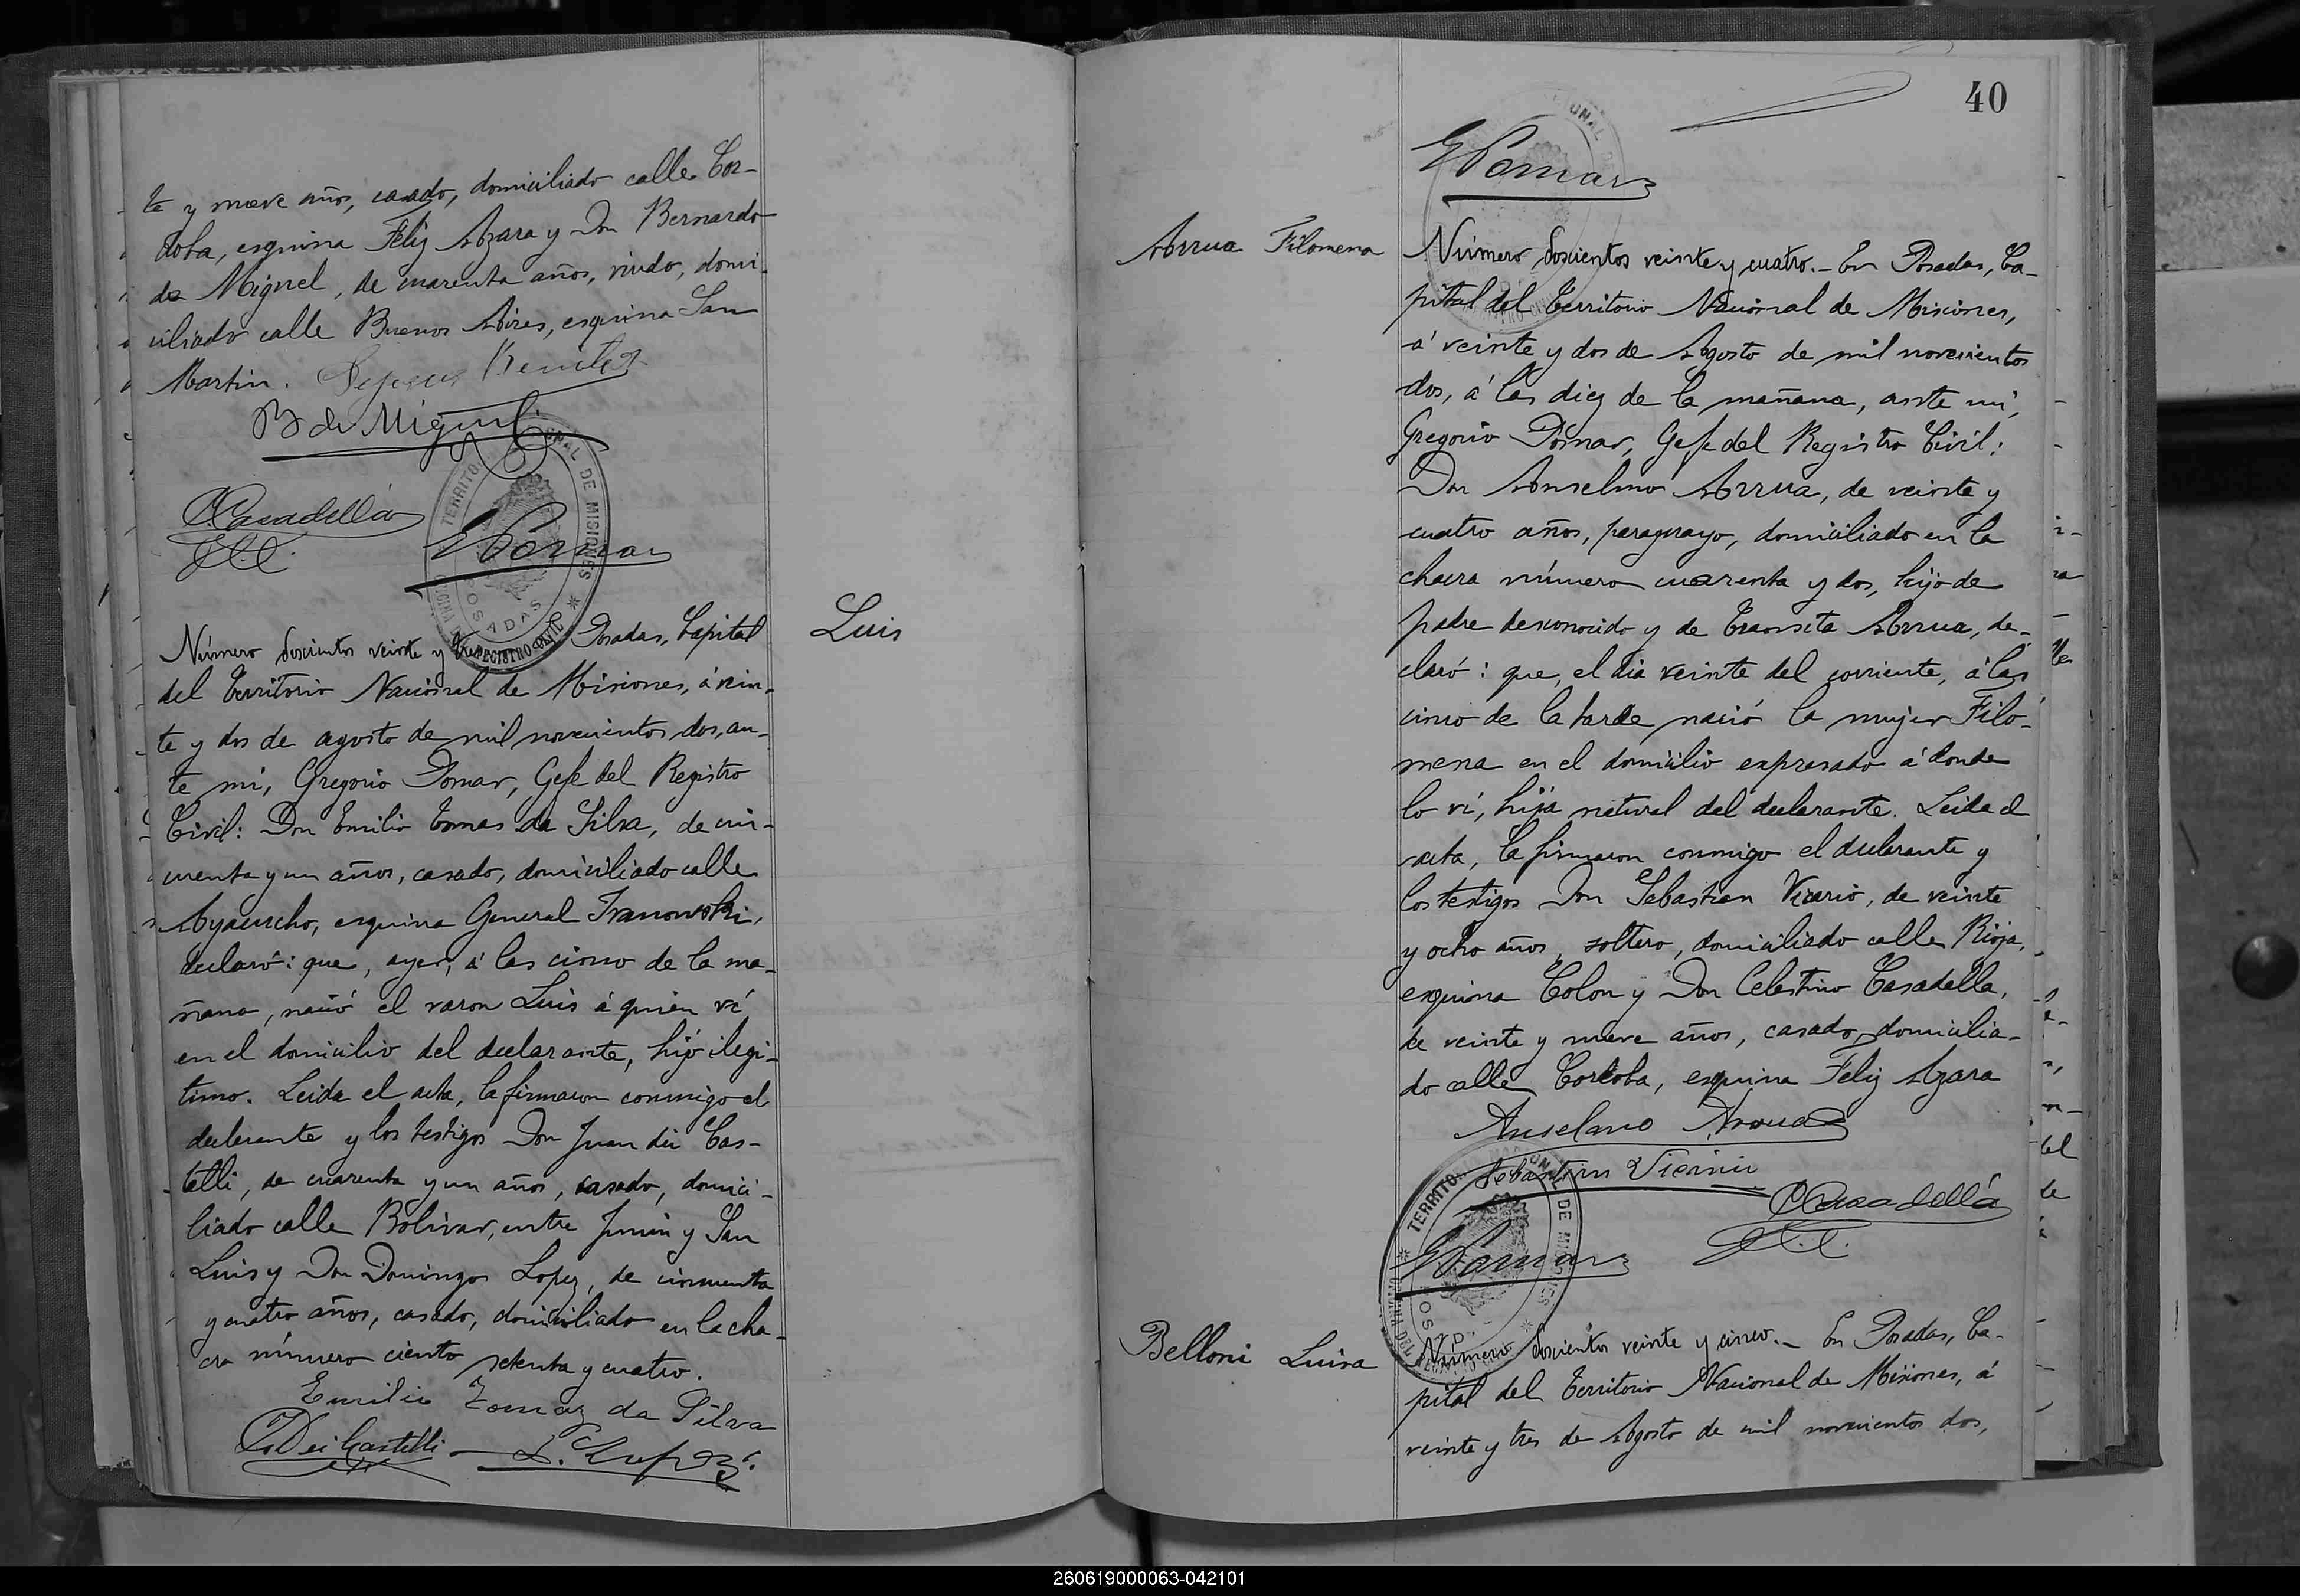 te y nueve años, casado, domiciliado calle Cor-
doba, esquina Feliz Azara y Don Bernardo
de Miguel, de cuarenta años, viudo, domi-
ciliado calle Buenos Aires, esquina San
Martin.
B de Miguel
CCasadellá
TERRITORIO NACIONAL DE MISIONES
POSADAS
REGISTRO CIVIL
GPomar
Número doscientos veinte y Posadas, Capital
Luis
del Territorio Nacional de Misiones, á vein-
te y dos de agosto de mil novecientos dos, an-
te mi, Gregorio Pomar, Gefe del Registro
Civil: Don Emilio Tomas da Silva, de cin-
cuenta y un años, casado, domiciliado calle
Ayacucho, esquina General Ivanowski,
declaró: que, ayer, á las cinco de la ma-
ñana, nació el varon Luis á quien ví
en el domicilio del declarante, hijo ilegi-
timo. Leida el acta, la firmaron conmigo el
declarante y los testigos Don Juan dei Cas-
telli, de cuarenta y un años, casado, domici-
liado calle Bolivar, entre Junin y San
Luis y Don Domingo Lopez, de cincuenta
y cuatro años, casado, domiciliado en la cha-
cra número ciento setenta y cuatro.
Emilio Tomaz da Silva
Dei Castelli
D. Lopez
40
GPomar
Arrua Filomena
Número doscientos veinte y cuatro.- En Posadas, Ca-
pital del Territorio Nacional de Misiones,
á veinte y dos de Agosto de mil novecientos
dos, á las diez de la mañana, ante mi,
Gregorio Pomar, Gefe del Registro Civil:
Don Anselmo Arrua, de veinte y
cuatro años, paraguayo, domiciliado en la
chacra número cuarenta y dos, hijo de
padre desconocido y de Transita Arrua, de-
claró: que, el dia veinte del corriente, á las
cinco de la tarde nació la mujer Filo-
mena en el domicilio expresado á donde
lo ví, hija natural del declarante. Leida el
acta, la firmaron conmigo el declarante y
los testigos Don Sebastian Vicario, de veinte
y ocho años, soltero, domiciliado calle Rioja,
esquina Colon y Don Celestino Casadella,
de veinte y nueve años, casado, domicilia-
do calle Cordoba, esquina Feliz Azara
Anselmo Arrua
Sebastian Vicario
CCasadellá
TERRITORIO NACIONAL DE MISIONES
GPomar
Belloni Luisa
Número doscientos veinte y cinco.- En Posadas, Ca-
pital del Territorio Nacional de Misiones, á
veinte y tres de Agosto de mil novecientos dos,
260619000063-042101